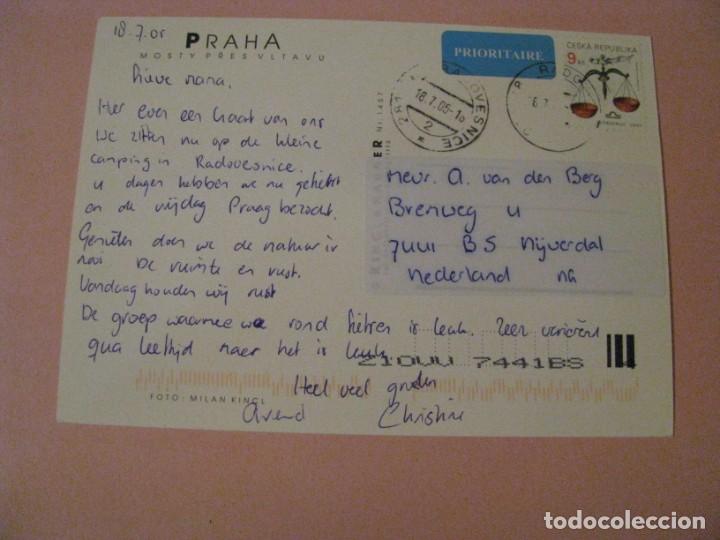 18.7.05
PRAHA
MOSTY PŘES VLTAVU
PRIORITAIRE
ČESKÁ REPUBLIKA
9 Kč
RADOVESNICE
18.7.05-10
2
Lieve mama,
Hier even een kaart van ons
We zitten nu op de kleine
camping in Radovesnice.
4 dagen hebben we nu gefietst
en de vrijdag Praag bezocht.
Genieten doen we de natuur is
mooi De ruimte en rust.
Vandaag houden wij rust
De groep waarmee we rond fietsen is leuk. Zeer variërend
qua leeftijd maar het is leuk
Heel veel groeten
Arend Christine
Mevr. A. van den Berg
Brenweg 4
7441 BS Nijverdal
Nederland
7441BS 4
FOTO: MILAN KINCL
todocoleccion.net